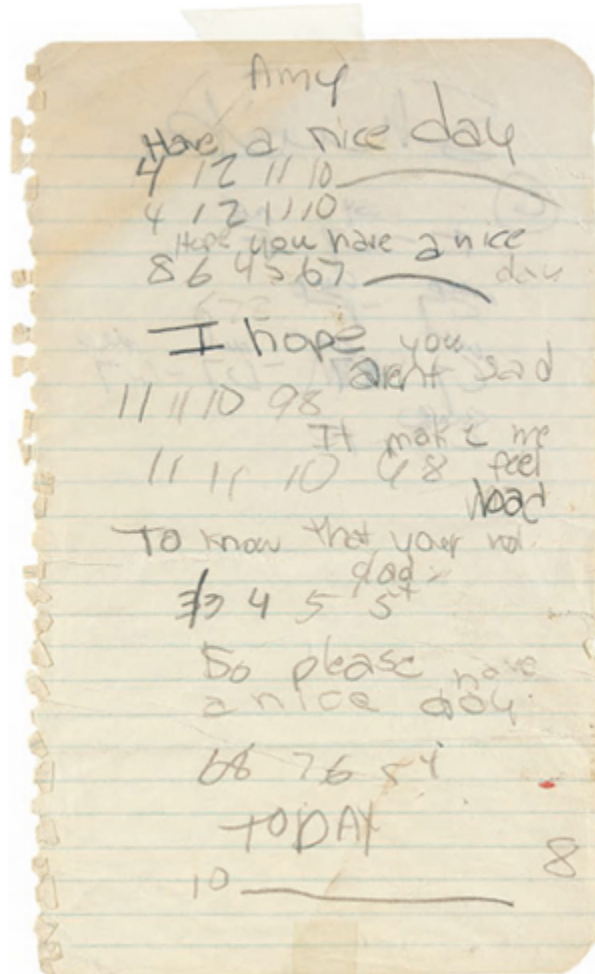 Amy
Have a nice day
4 12 11 10
4 12 11 10
Hope you have a nice
8 6 4 5 67 day
I hope you
arent sad
11 11 10 98
It make me
11 11 10 68 feel
bad
To know that your not
glad
33 4 5 5
So please have
a nice day
68 76 54
TODAY
10
8